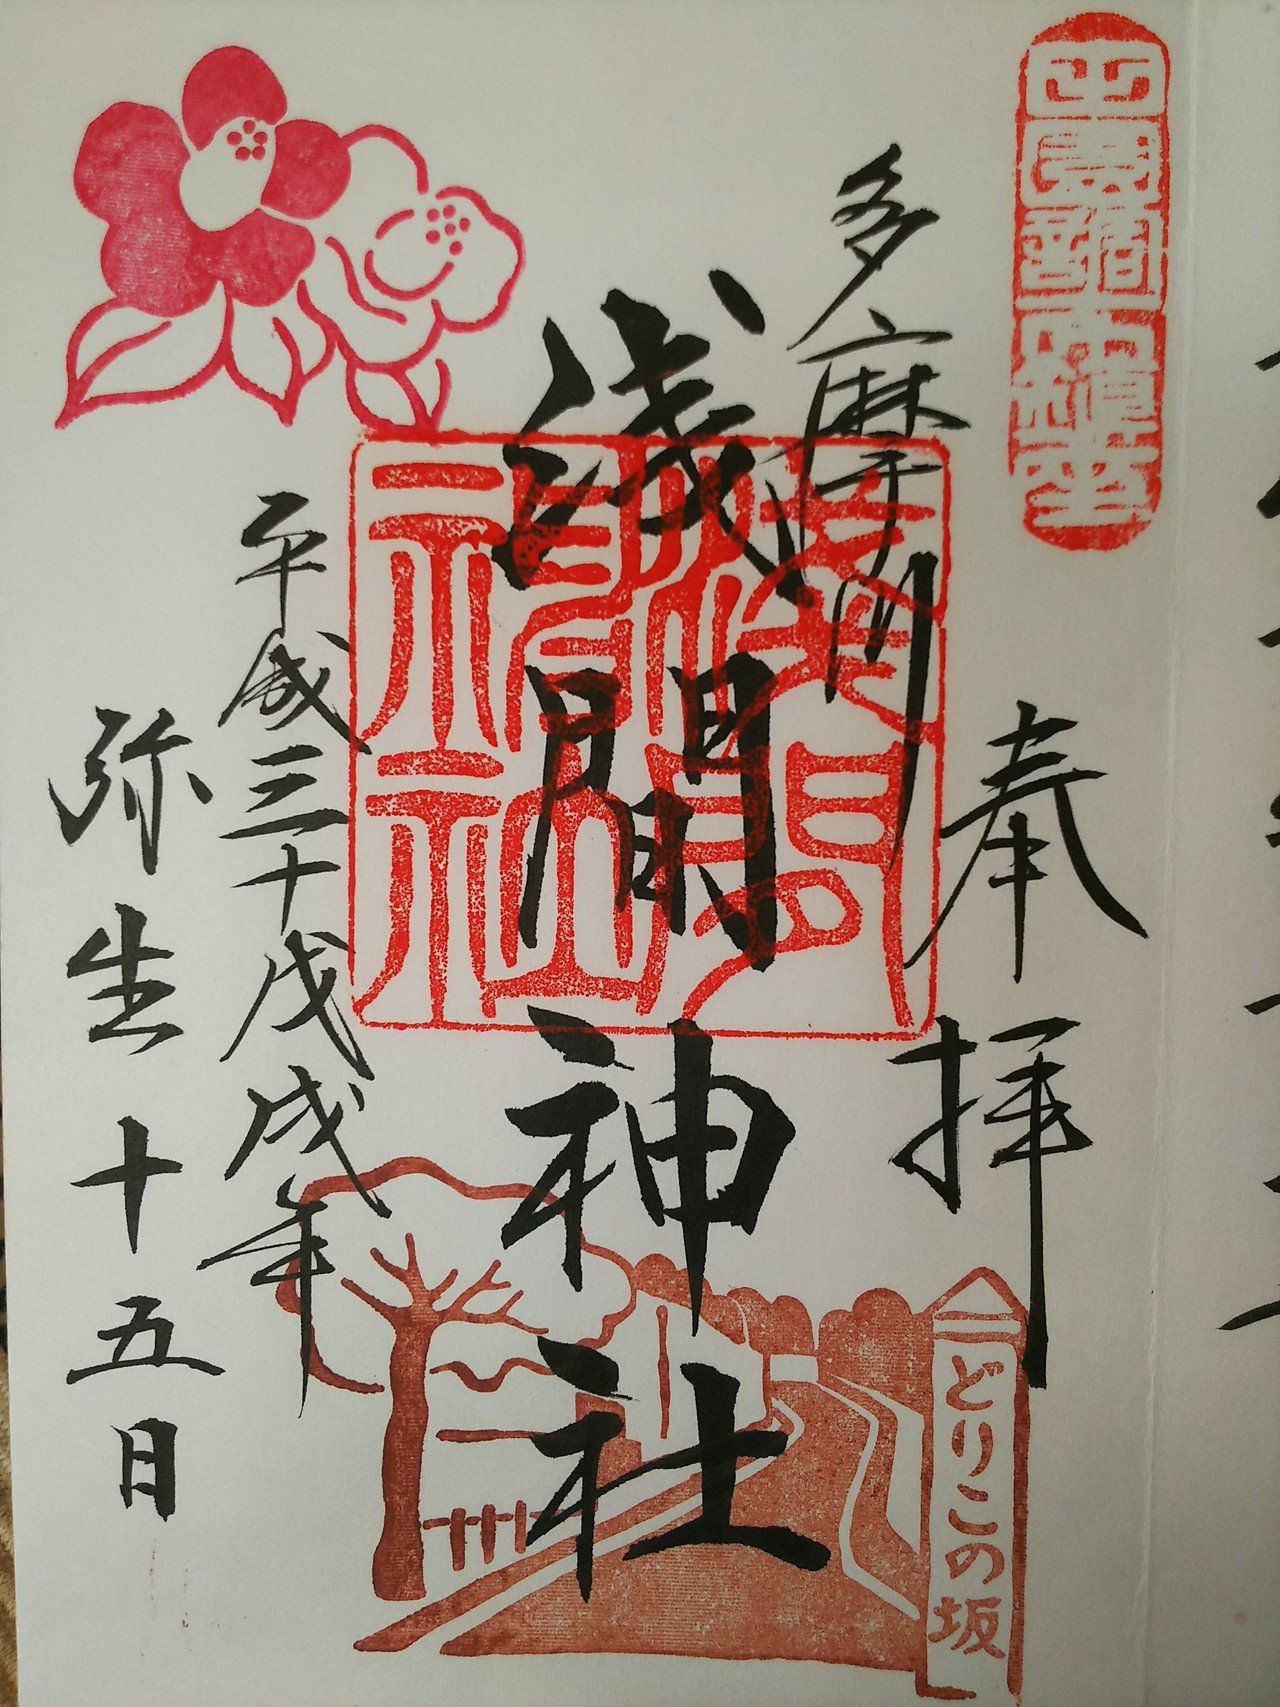 奉拝
多摩川
浅間神社
平成三十戊戌年
弥生十五日
どりこの坂